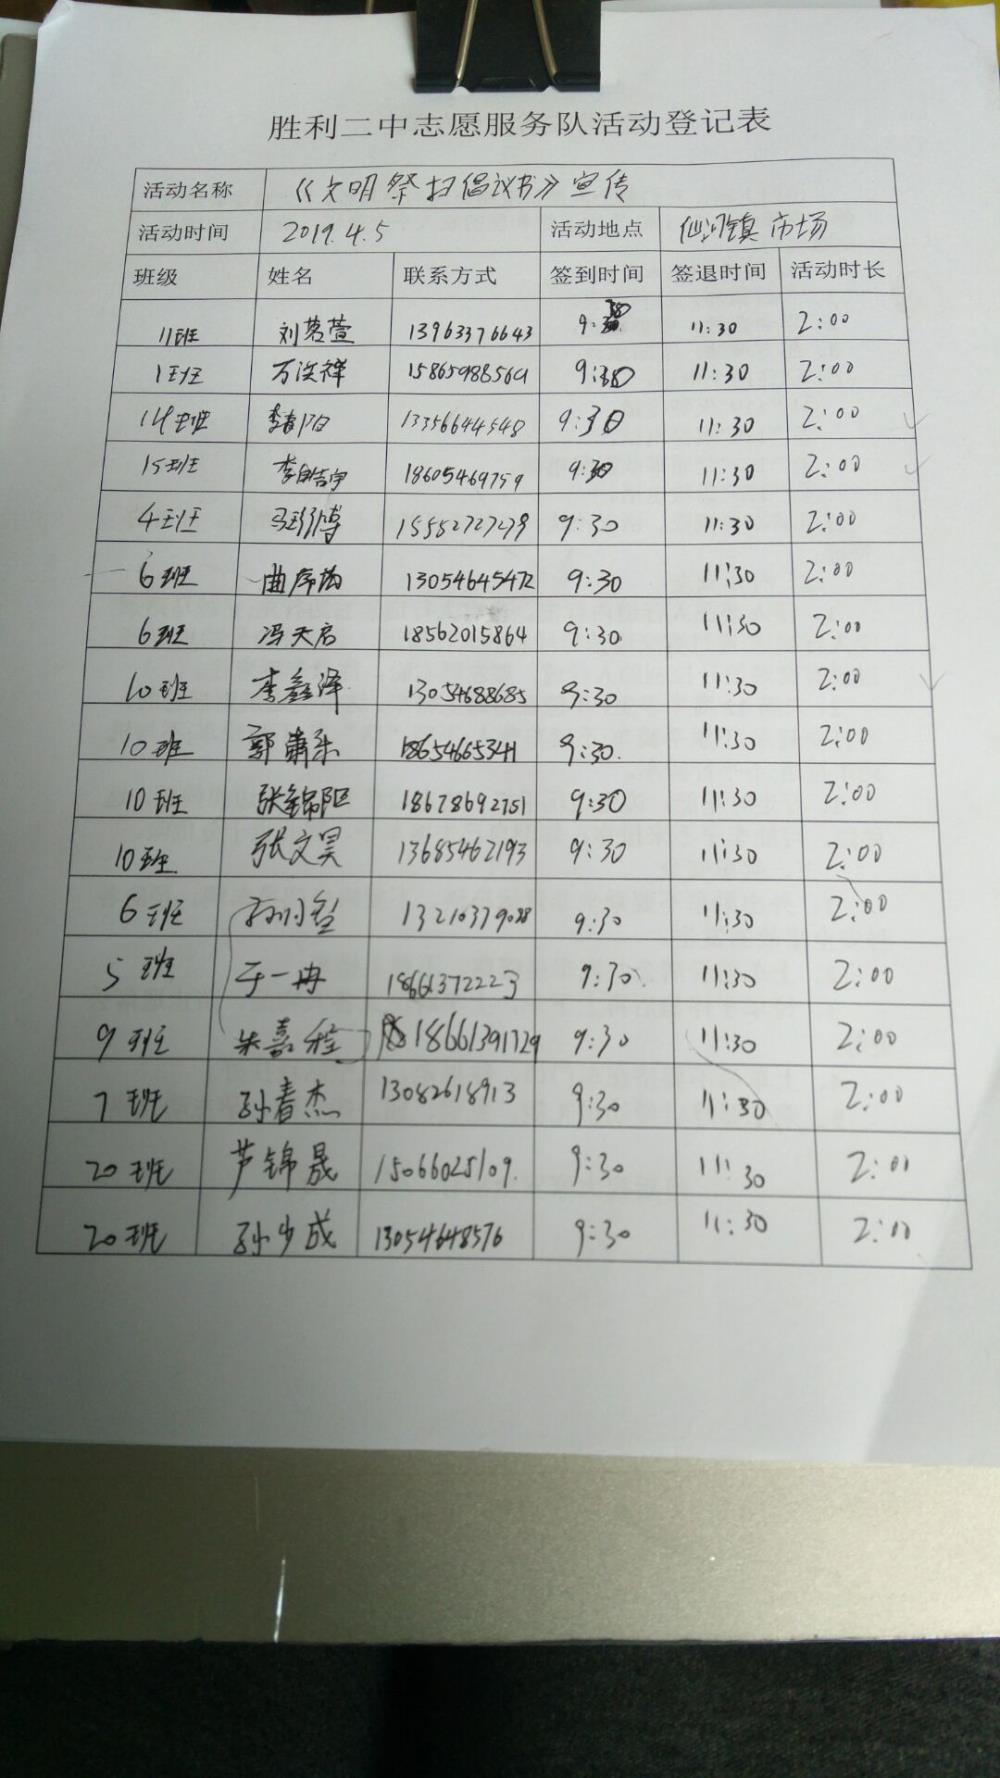 胜利二中志愿服务队活动登记表
活动名称 《文明祭扫倡议书》宣传
活动时间 2019.4.5 活动地点 仙河镇市场
班级 姓名 联系方式 签到时间 签退时间 活动时长
11班 刘茗萱 13963376643 9:30 11:30 2:00
1班 万洪祥 9:30 11:30 2:00
14班 李春阳 13356644548 9:30 11:30 2:00
15班 18605469759 9:30 11:30 2:00
4班 15552727279 9:30 11:30 2:00
6班 13054645472 9:30 11:30 2:00
6班 冯天启 18562015864 9:30 11:30 2:00
10班 李鑫泽 13054688685 9:30 11:30 2:00
10班 郭萧乐 18654665341 9:30. 11:30 2:00
10班 18678692751 9:30 11:30 2:00
10班 张文昊 13685462193 9:30 11:30 2:00
6班 9:30 11:30 2:00
5班 于一冉 18661372223 9:30 11:30 2:00
9班 朱嘉程 18661391729 9:30 11:30 2:00
7班 孙春杰 13082618913 9:30 11:30 2:00
20班 芦锦晟 15066025109. 9:30 11:30 2:00
20班 孙少成 13054648576 9:30 11:30 2:00